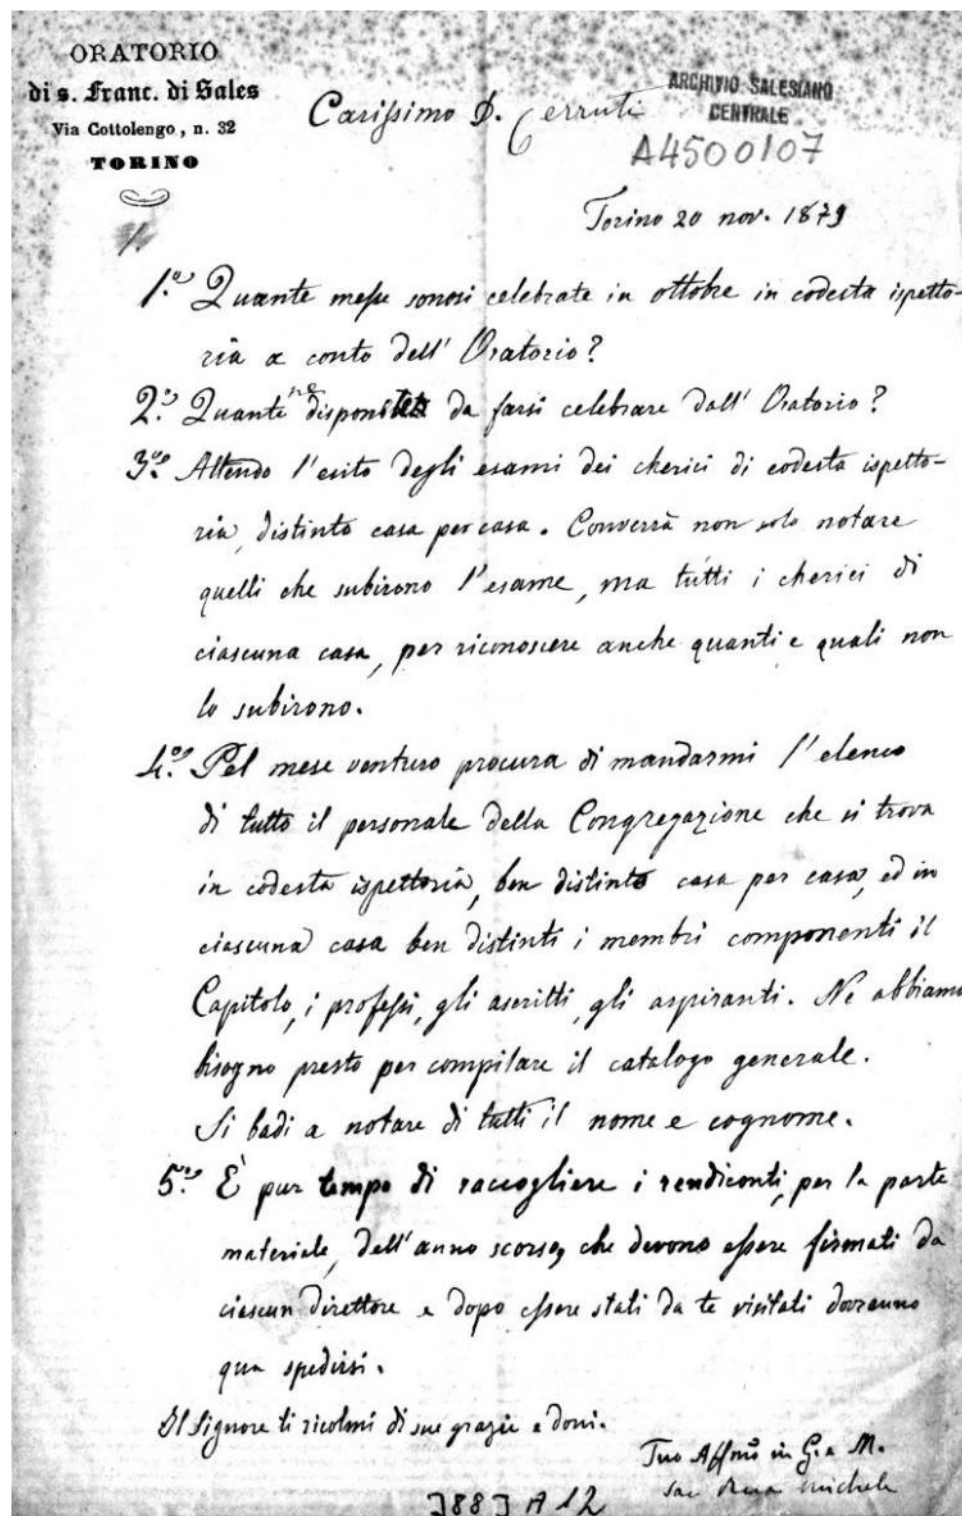 ORATORIO
di s. Franc. di Sales
Via Cottolengo, n. 32
TORINO
ARCHIVIO SALESIANO
CENTRALE
A4500107
Carissimo D. Cerruti
Torino 20 nov. 1879
1.
1.º Quante messe sonosi celebrate in ottobre in codesta ispetto-
ria a conto dell' Oratorio?
2.º Quante ne disponete da farsi celebrare dall' Oratorio?
3.º Attendo l'esito degli esami dei cherici di codesta ispetto-
ria, distinto casa per casa. Converrà non solo notare
quelli che subirono l'esame, ma tutti i cherici di
ciascuna casa, per riconoscere anche quanti e quali non
lo subirono.
4.º Pel mese venturo procura di mandarmi l'elenco
di tutto il personale della Congregazione che si trova
in codesta ispettoria, ben distinto casa per casa, ed in
ciascuna casa ben distinti i membri componenti il
Capitolo, i professi, gli ascritti, gli aspiranti. Ne abbiamo
bisogno presto per compilare il catalogo generale.
Si badi a notare di tutti il nome e cognome.
5.º È pur tempo di raccogliere i rendiconti, per la parte
materiale, dell'anno scorso, che devono essere firmati da
ciascun direttore e dopo essere stati da te visitati dovranno
qua spedirsi.
Il Signore ti ricolmi di sue grazie e doni.
Tuo Affmo in G. e M.
Sac Rua Michele
3883 A 12